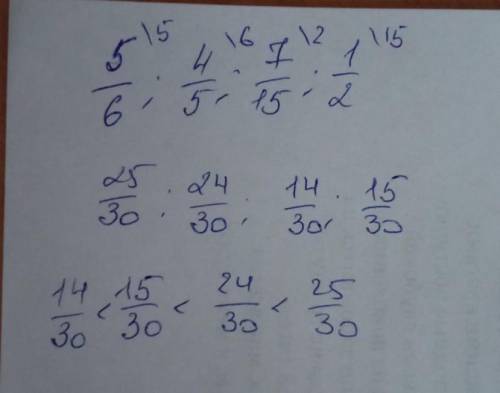 5/6 \5 ; 4/5 \6 ; 7/15 \2 ; 1/2 \15
25/30 ; 24/30 ; 14/30 ; 15/30
14/30 < 15/30 < 24/30 < 25/30